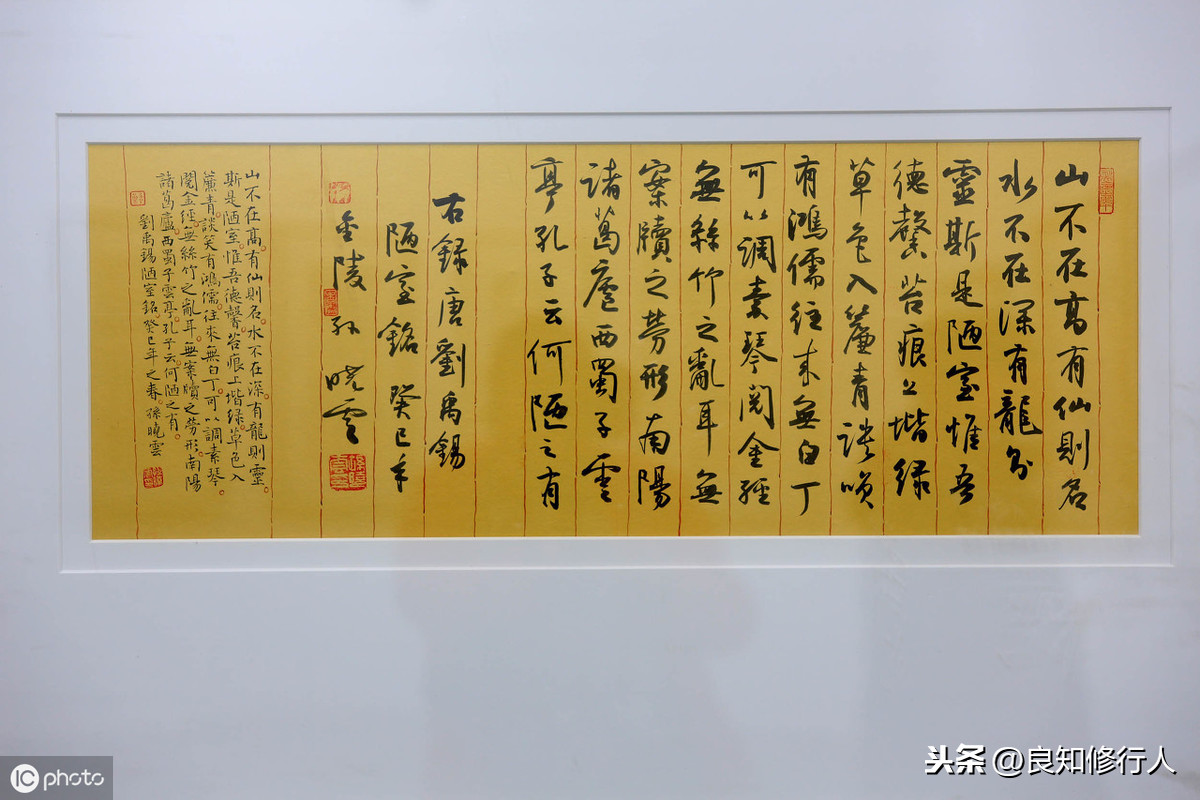 山不在高有仙則名
水不在深有龍則
靈斯是陋室惟吾
德馨苔痕上堦綠
草色入簾青談笑
有鴻儒往来無白丁
可以調素琴閱金經
無絲竹之亂耳無
案牘之勞形南陽
諸葛廬西蜀子雲
亭孔子云何陋之有
右録唐劉禹錫
陋室銘癸巳年
金陵孫曉雲
山不在高。有仙則名。水不在深。有龍則靈。
斯是陋室。惟吾德馨。苔痕上堦綠。草色入
簾青。談笑有鴻儒。往來無白丁。可以調素琴。
閱金經。無絲竹之亂耳。無案牘之勞形。南陽
諸葛廬。西蜀子雲亭。孔子云。何陋之有。
劉禹錫陋室銘。癸巳年之春。孫曉雲
IC photo
头条 @良知修行人